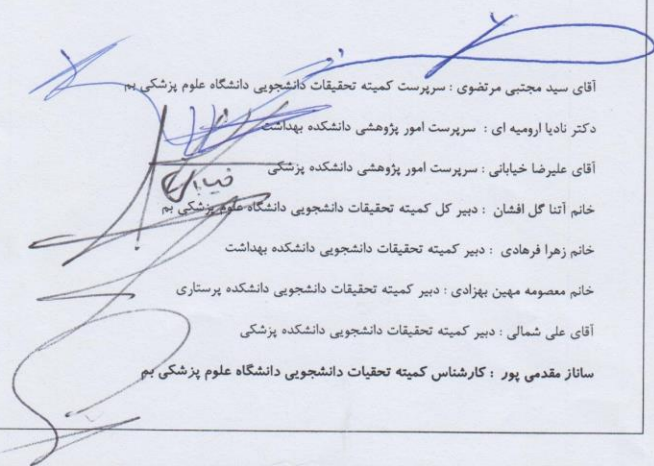 آقای سید مجتبی مرتضوی : سرپرست کمیته تحقیقات دانشجویی دانشگاه علوم پزشکی بم
دکتر نادیا ارومیه ای : سرپرست امور پژوهشی دانشکده بهداشت
آقای علیرضا خیابانی : سرپرست امور پژوهشی دانشکده پزشکی
خانم آتنا گل افشان : دبیر کل کمیته تحقیقات دانشجویی دانشگاه علوم پزشکی بم
خانم زهرا فرهادی : دبیر کمیته تحقیقات دانشجویی دانشکده بهداشت
خانم معصومه مهین بهزادی : دبیر کمیته تحقیقات دانشجویی دانشکده پرستاری
آقای علی شمالی : دبیر کمیته تحقیقات دانشجویی دانشکده پزشکی
ساناز مقدمی پور : کارشناس کمیته تحقیات دانشجویی دانشگاه علوم پزشکی بم